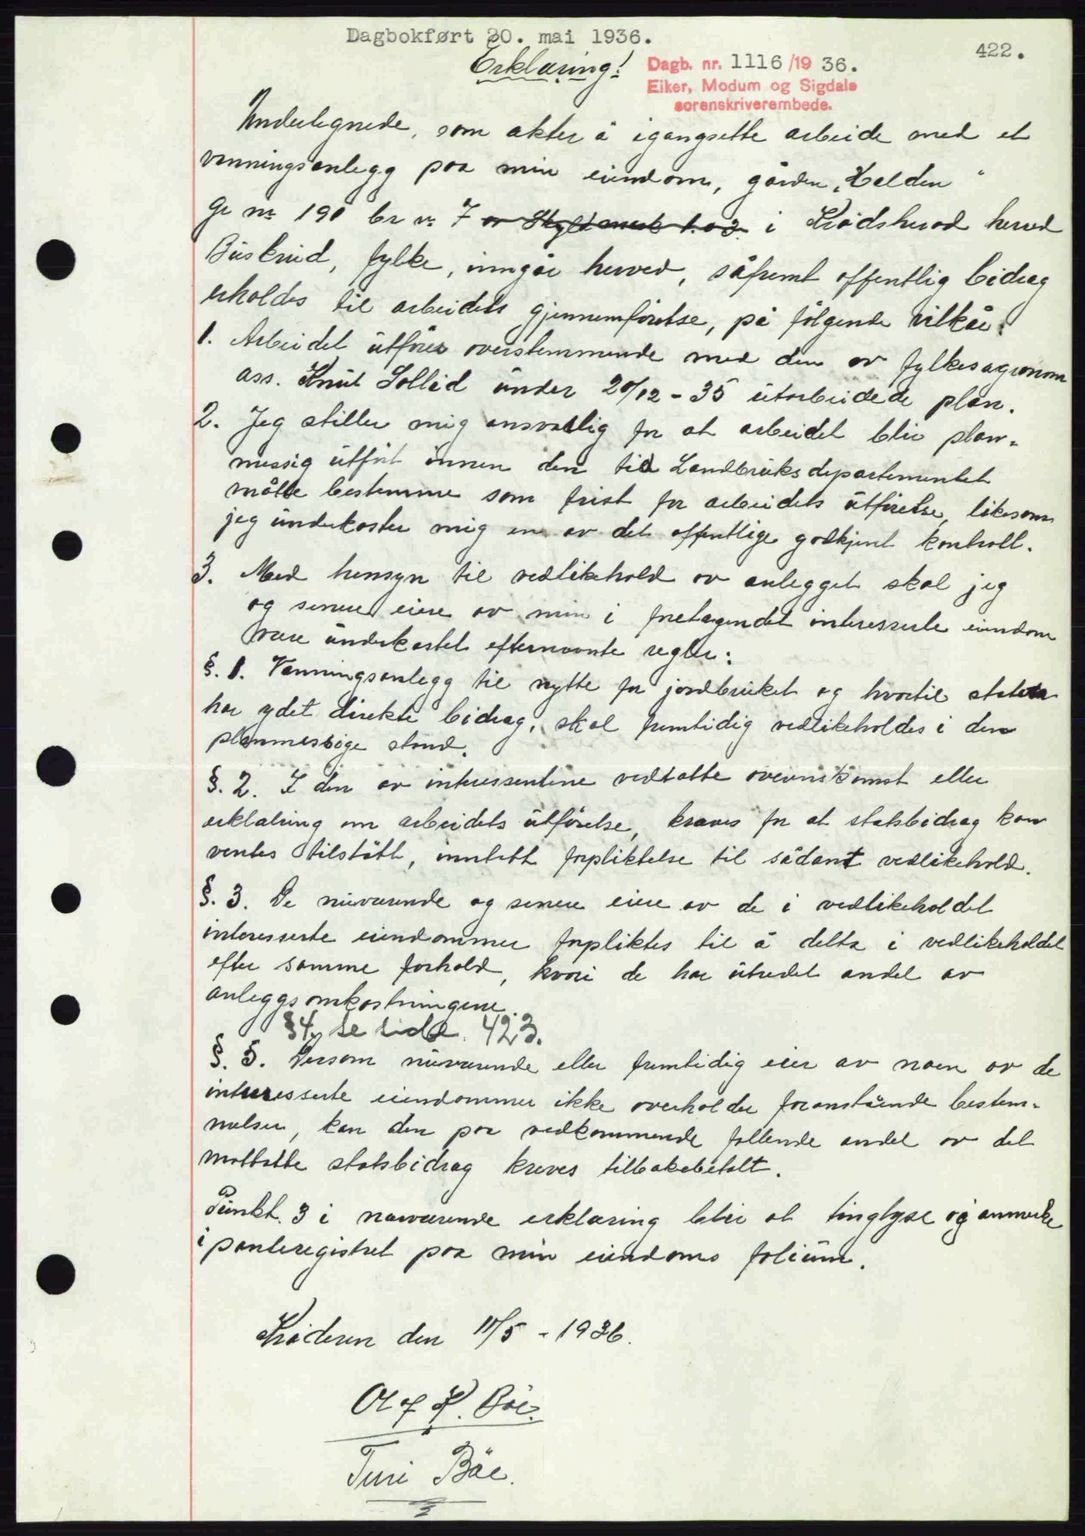 Dagbokført 20. mai 1936.
422.
Erklæring!
Dagb. nr. 1116/1936.
Eiker, Modum og Sigdals
sorenskriverembede.
Undertegnede, som akter å igangsette arbeide med et
vanningsanlegg paa min eiendom, gården "Halden"
Gr nr 190 br nr 7 i Krødsherad herred
Buskrud, fylke, inngår herved, såfremt offentlig bidrag
erholdes til arbeidets gjennemførelse, på følgende vilkår:
1. Arbeidet utføres overstemmende med den av fylkesagronom
ass. Knut Sollid under 20/12-35 utarbeidede plan.
2. Jeg stiller mig ansvarlig for at arbeidet blir plan-
messig utført innen den tid Landbruksdepartementet
måtte bestemme som frist for arbeidets utførelse, likesom
jeg underkaster mig en av det offentlige godkjent kontroll.
3. Med hensyn til vedlikehold av anlegget skal jeg
og senere eiere av min i foretagendet interesserte eiendom
være underkastet efternevnte regler:
§. 1. Vanningsanlegg til nytte for jordbruket og hvortil staten
har ydet direkte bidrag, skal fremtidig vedlikeholdes i den
planmessige stand.
§. 2. I den av interessentene vedtatte overenskomst eller
erklæring om arbeidets utførelse, kreves for at statsbidrag kan
ventes tilstått, inntatt forpliktelse til sådant vedlikehold.
§. 3. De nuværende og senere eiere av de i vedlikeholdet
interesserte eiendommer forpliktes til å delta i vedlikeholdet
efter samme forhold, hvori de har utredet andel av
anleggsomkostningene.
§4, se side. 423.
§. 5. Dersom nuværende eller fremtidig eier av noen av de
interesserte eiendommer ikke overholder foranstående bestem-
melser, kan den paa vedkommende fallende andel av det
mottatte statsbidrag kreves tilbakebetalt.
Punkt. 3 i nærværende erklæring blir at tinglyse og anmerke
i panteregistret paa min eiendoms folium.
Krøderen den 11/5 - 1936.
Olaf K. Bøe.
Turi Bøe.